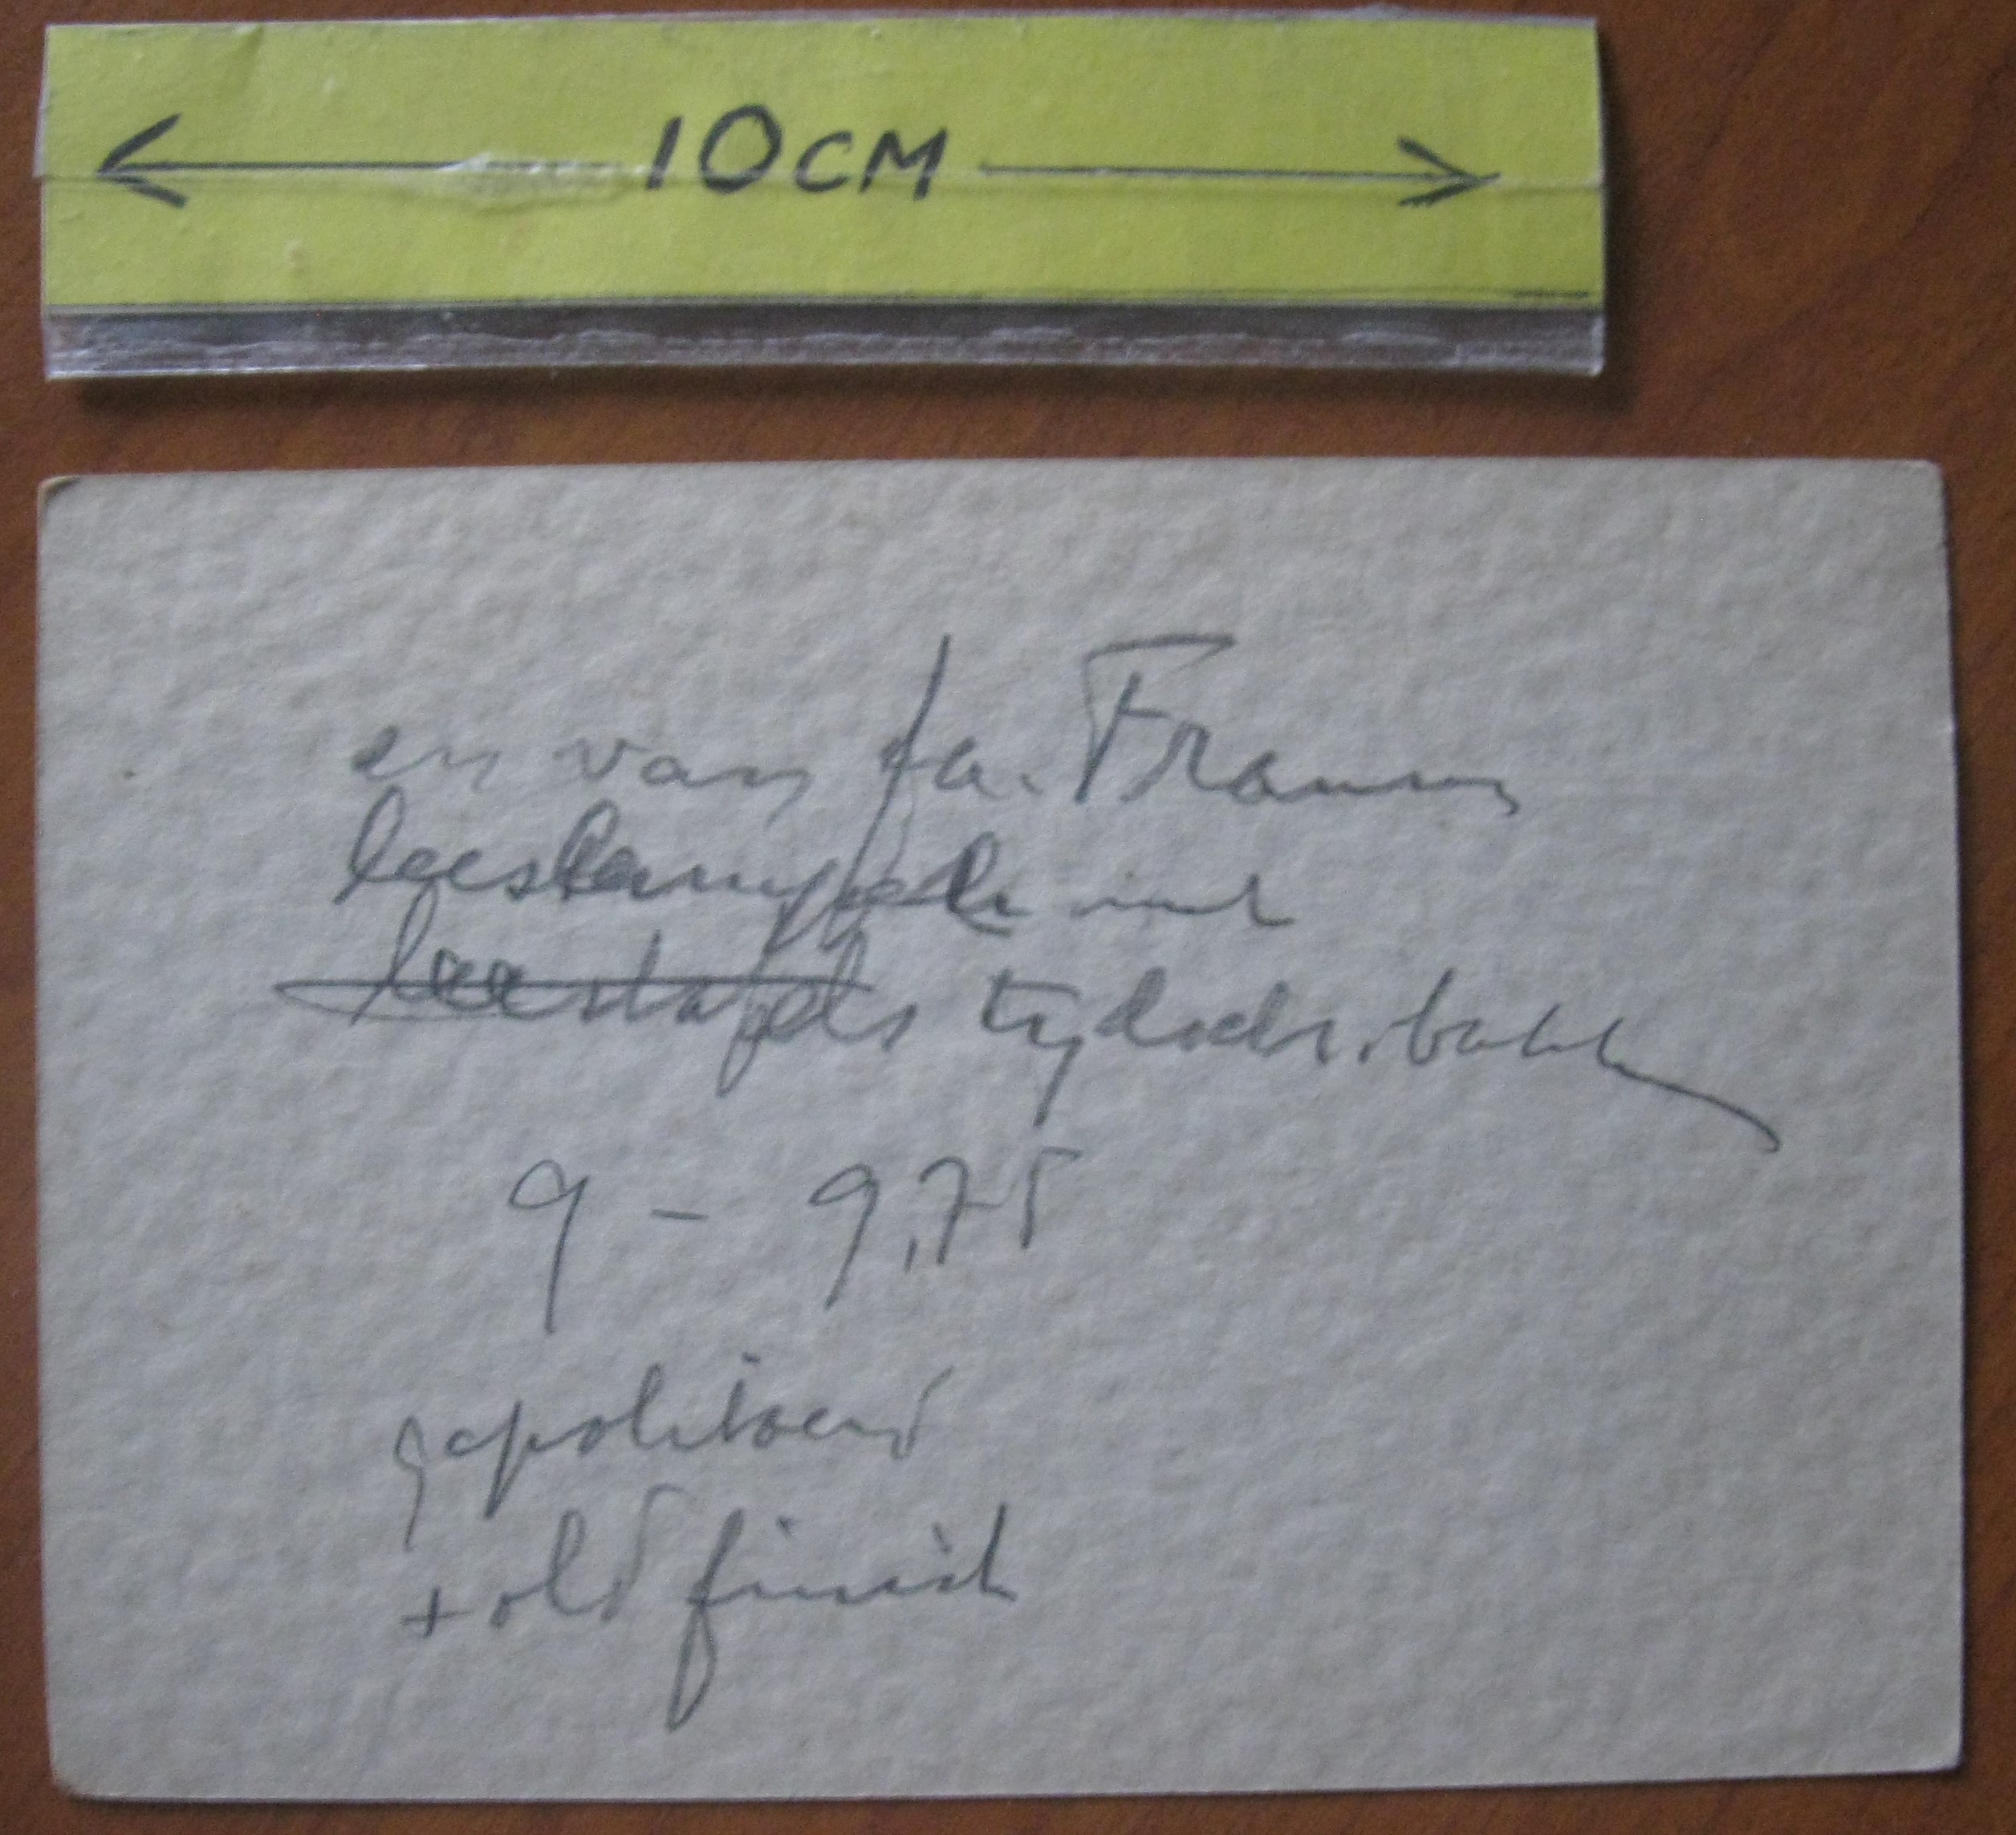 10CM
en van fa. Fransen
leeslampen met
leestafels tijdschr. bakken
9 - 9,75
gepolitoerd
+ old finish